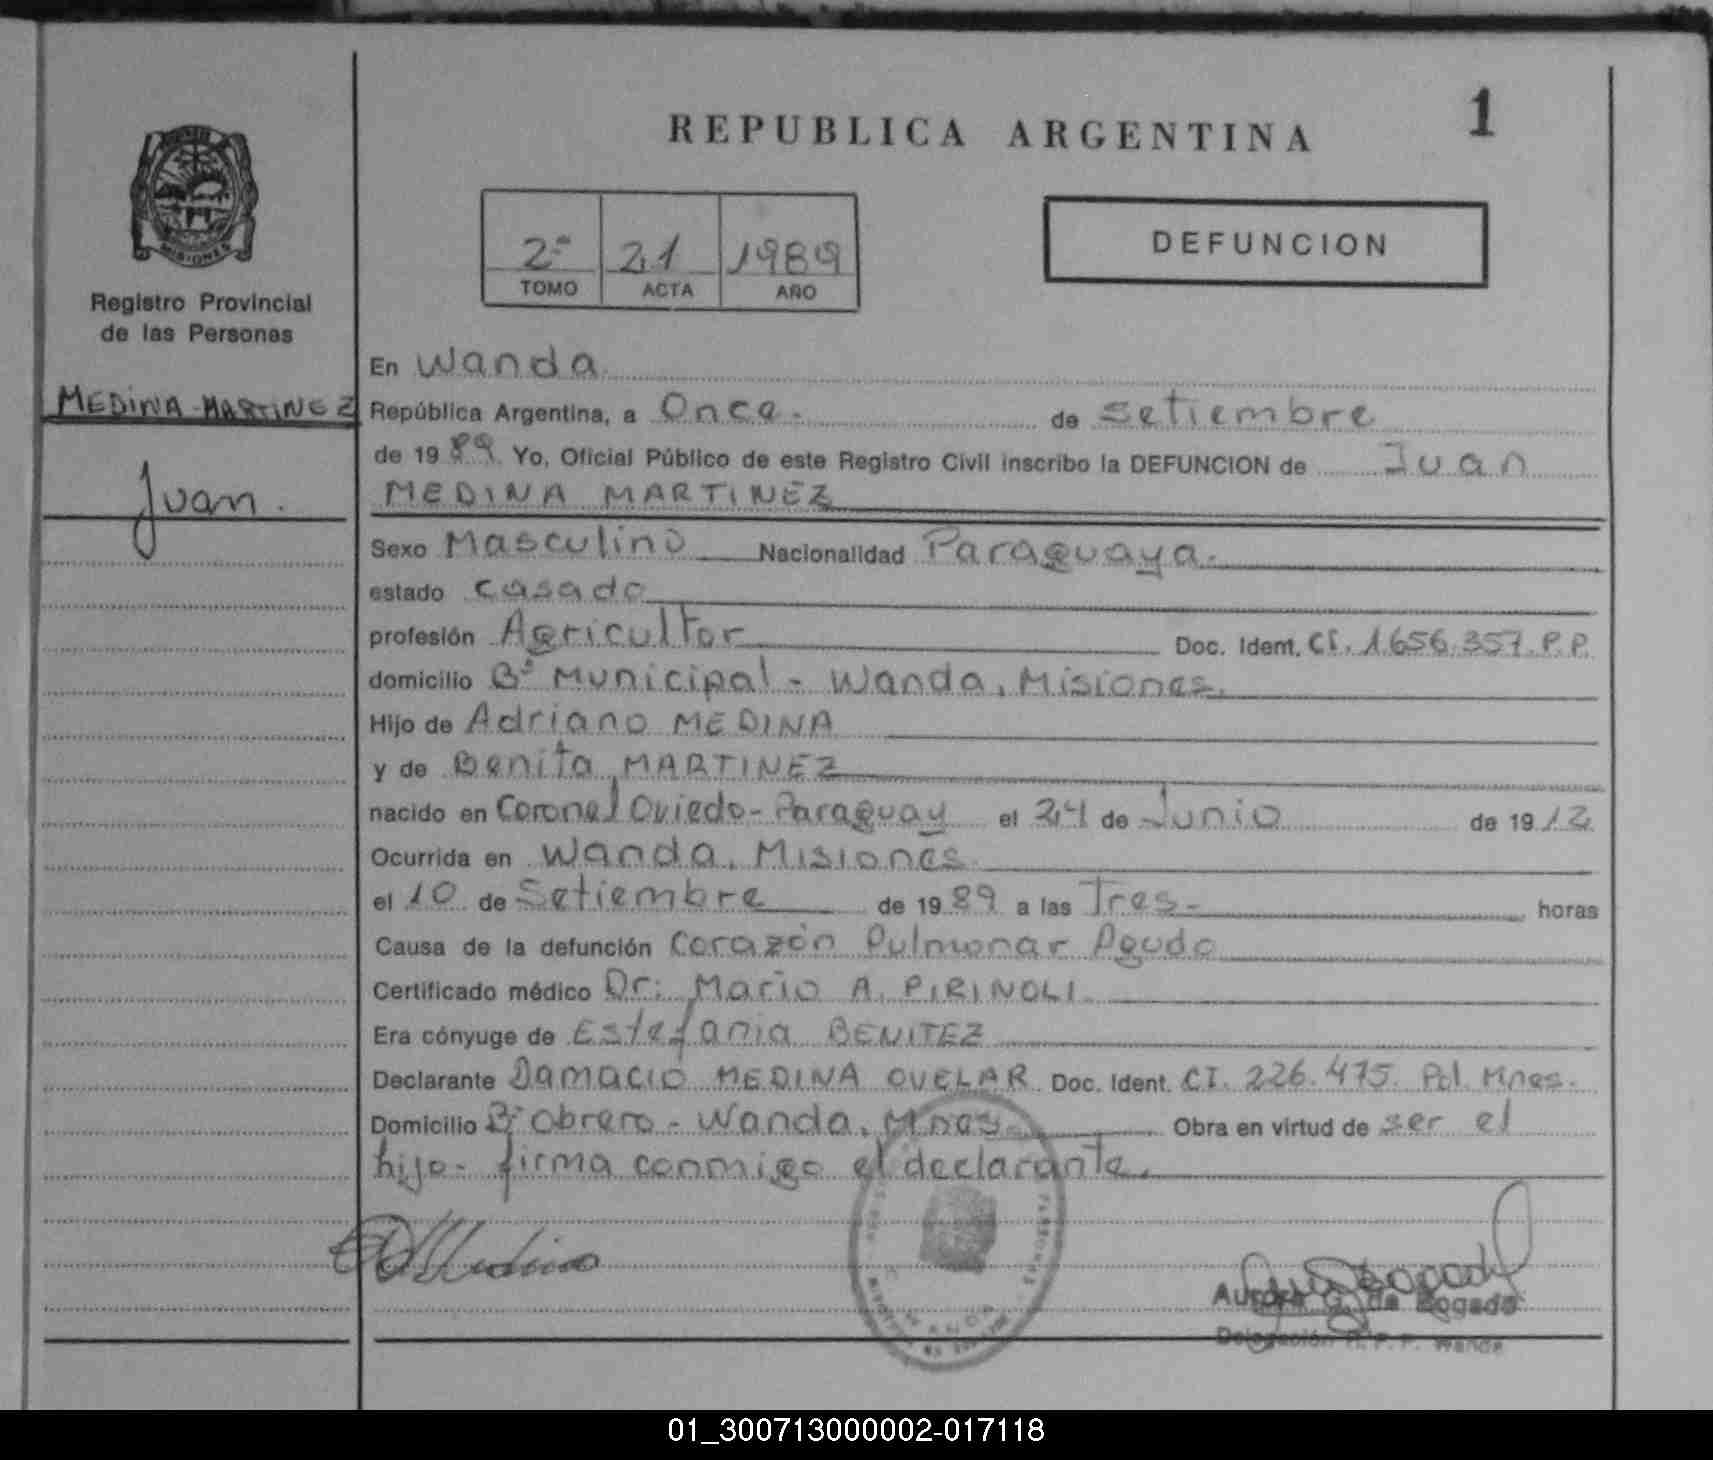 REPUBLICA ARGENTINA
1
MISIONES
Registro Provincial
de las Personas
MEDINA-MARTINEZ
Juan.
2º 21 1989
TOMO ACTA AÑO
DEFUNCION
En Wanda
República Argentina, a Once. de setiembre
de 1989 Yo, Oficial Público de este Registro Civil inscribo la DEFUNCION de Juan
MEDINA MARTINEZ
Sexo Masculino Nacionalidad Paraguaya.
estado casado
profesión Agricultor Doc. Ident. CI. 1.656.357. P.P.
domicilio Bº Municipal - Wanda, Misiones.
Hijo de Adriano MEDINA
y de Benita MARTINEZ
nacido en Coronel Oviedo-Paraguay el 24 de Junio de 1912
Ocurrida en Wanda, Misiones
el 10 de Setiembre de 1989 a las Tres- horas
Causa de la defunción Corazón Pulmonar Agudo
Certificado médico Dr: Mario A. PIRINOLI
Era cónyuge de Estefania BENITEZ
Declarante Damacio MEDINA OVELAR Doc. Ident. CI. 226.475. Pol. Mnes.
Domicilio Bº Obrero - Wanda, Mnes. Obra en virtud de ser el
hijo- firma conmigo el declarante.
Medina
Aurora G. de Bogado
Delegación R. P. P. Wanda
01_300713000002-017118